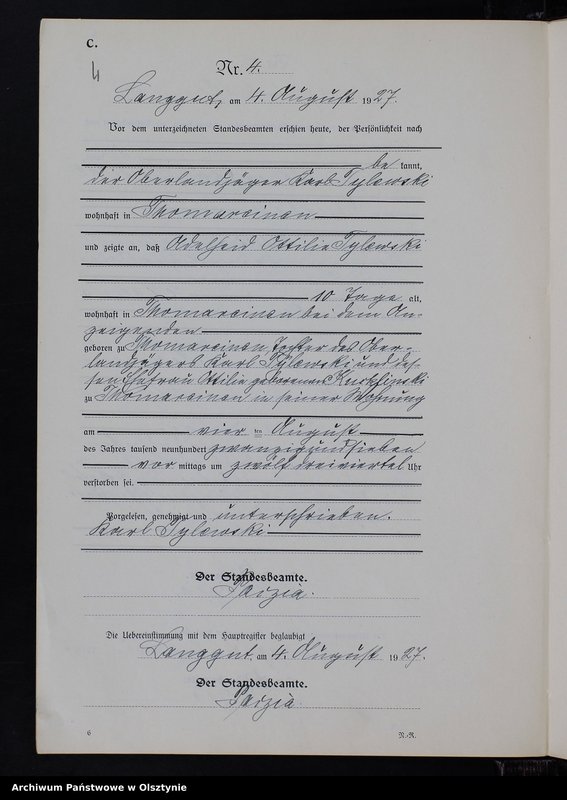 C.
4
Nr. 4.
Langgut, am 4. August 1927.
Vor dem unterzeichneten Standesbeamten erschien heute, der Persönlichkeit nach
be kannt,
der Oberlandjäger Karl Tylewski
wohnhaft in Thomareinen
und zeigte an, daß Adelheid Ottilie Tylewski
10 Tage alt,
wohnhaft in Thomareinen bei dem An-
zeigenden
geboren zu Thomareinen, Tochter des Ober-
landjägers Karl Tylewski und des-
sen Ehefrau Ottilie geborenen
zu Thomareinen in seiner Wohnung
am vier ten August
des Jahres tausend neunhundert zwanzigundsieben
vor mittags um zwölf dreiviertel Uhr
verstorben sei.
Vorgelesen, genehmigt und unterschrieben.
Karl Tylewski
Der Standesbeamte.
Die Uebereinstimmung mit dem Hauptregister beglaubigt
Langgut, am 4. August 1927.
Der Standesbeamte.
6
N.-R.
Archiwum Państwowe w Olsztynie